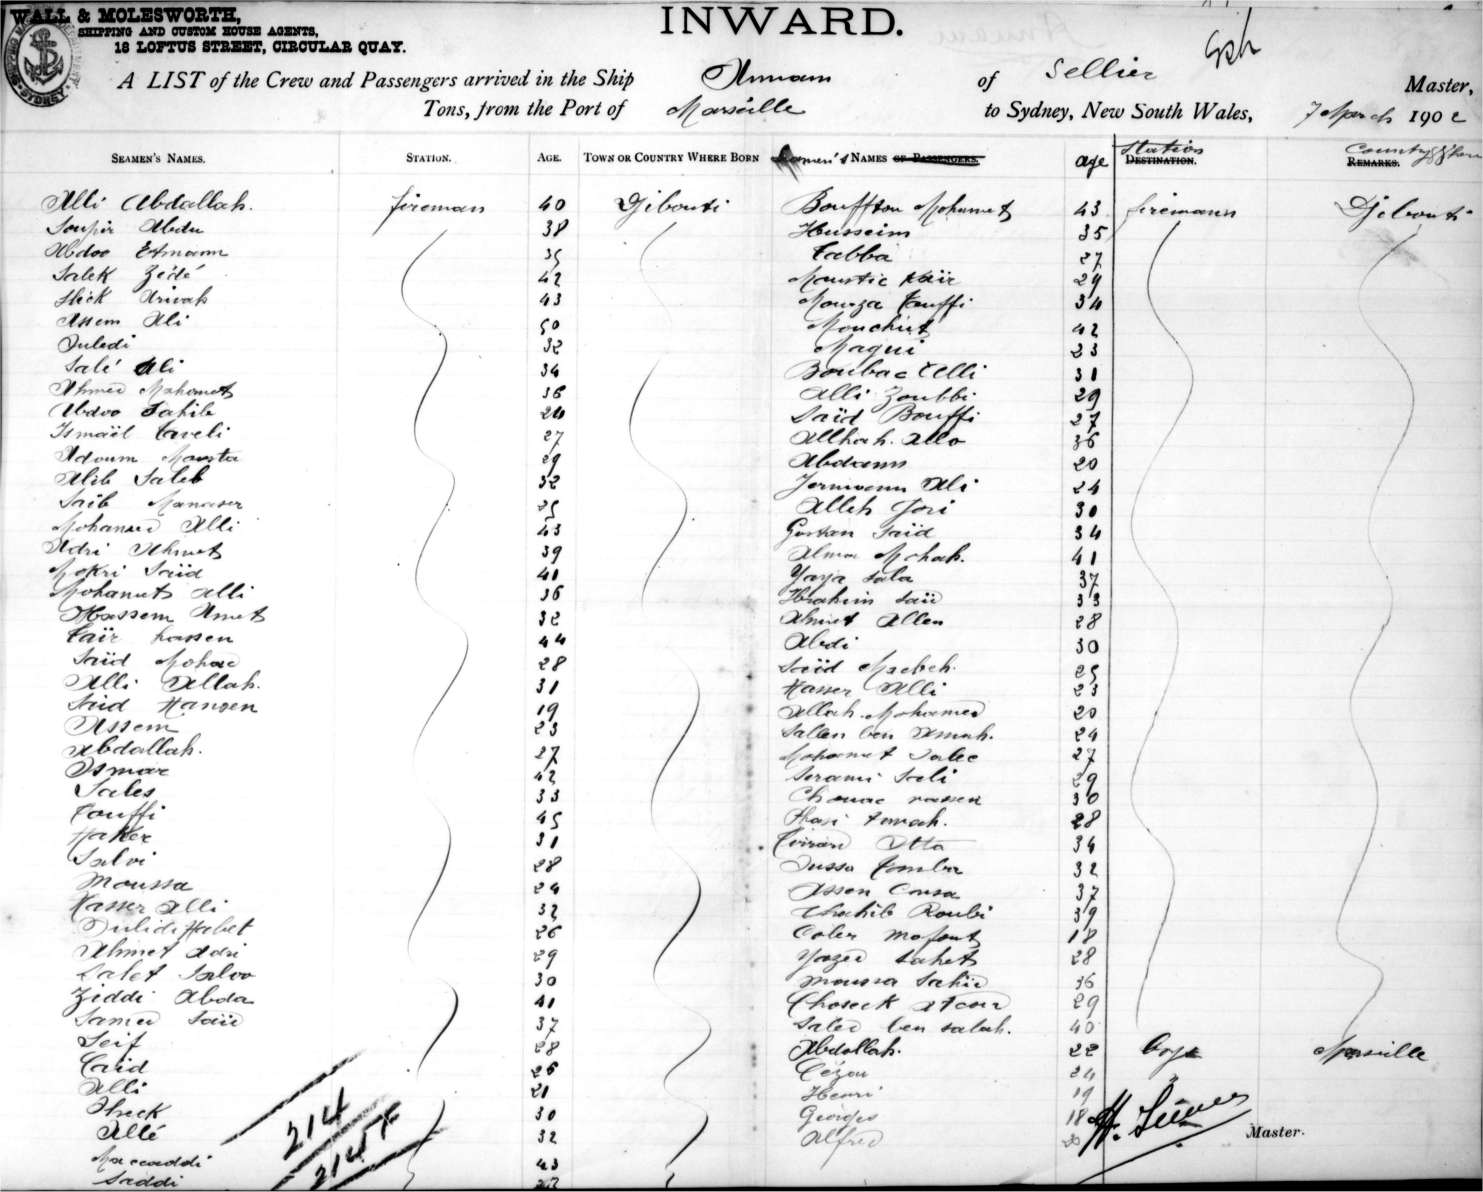 WALL & MOLESWORTH,
SHIPPING AND CUSTOM HOUSE AGENTS,
18 LOFTUS STREET, CIRCULAR QUAY.
INWARD.
A LIST of the Crew and Passengers arrived in the Ship Annam of Sellier Master,
Tons, from the Port of Marseille to Sydney, New South Wales, 7 March 1902
SEAMEN'S NAMES. STATION. AGE. TOWN OR COUNTRY WHERE BORN Seamen's NAMES OF PASSENGERS. age Station DESTINATION. Country REMARKS.
Alli Abdallah. fireman 40 Djibouti Bouffton Mohamet 43 firemann Djibouti
Soupir Abdu 38 Husseim 35
Abdoo Etmann 35 Cabba 27
Salek Zédé 42 Moustic Kair 29
Sheik Arivah 43 Mouza Touffi 34
Assem Ali 50 Mouchiet 42
Duledi 32 Maqui 23
Salé Ali 34 Boubac Alli 31
Ahmed Mohamet 36 Alli Zoubbi 29
Abdoo Sahib 24 Saïd Bouffi 27
Ismaïl Caveli 27 Allhah. Allo 36
Adoum Mousta 29 Abdann 20
Alib Saleb 32 Ali 24
Saib Manaser 25 Alleh Jori 30
Mohamed Alli 43 Saïd 34
Adri Ahmet 39 Alma Mohah. 41
Mokri Saïd 41 Yaya Sala 37
Mohamet Alli 36 Ibrahim Saïd 33
Hassem Amet 32 Ahmet Allen 28
Taïr hassen 44 Abdi 30
Saïd Mohac 28 Saïd Macbeh. 25
Alli Allah. 31 Hasser Alli 23
Said Hansen 19 Allah Mohamed 20
Assem 23 Sallen ben Amah. 24
Abdallah. 27 Mohamet Salec 27
Ismar 42 Serami Sali 29
Sales 33 Chouac nassen 30
Touffi 45 28
Haker 31 Atta 34
Salvi 28 Dussa Comba 32
Moussa 24 Assen Coussa 37
Hasser Alli 32 Chahib Roubi 39
Dulidi Habet 26 Coler 18
Ahmet Adri 29 Yazed Sahet 28
Salet Saloo 30 Moussa Sahïd 36
Ziddi Abda 41 Choseck 29
Samed Saïd 37 Saled ben salah. 40
Seif 28 Abdallah. 22 boy Marseille
Caid 26 Cézou 24
Alli 21 Henri 19
Sheck 30 Georges 18
Allé 32 Alfred 20 Master.
Maccaddi 43
Saddi 27
214